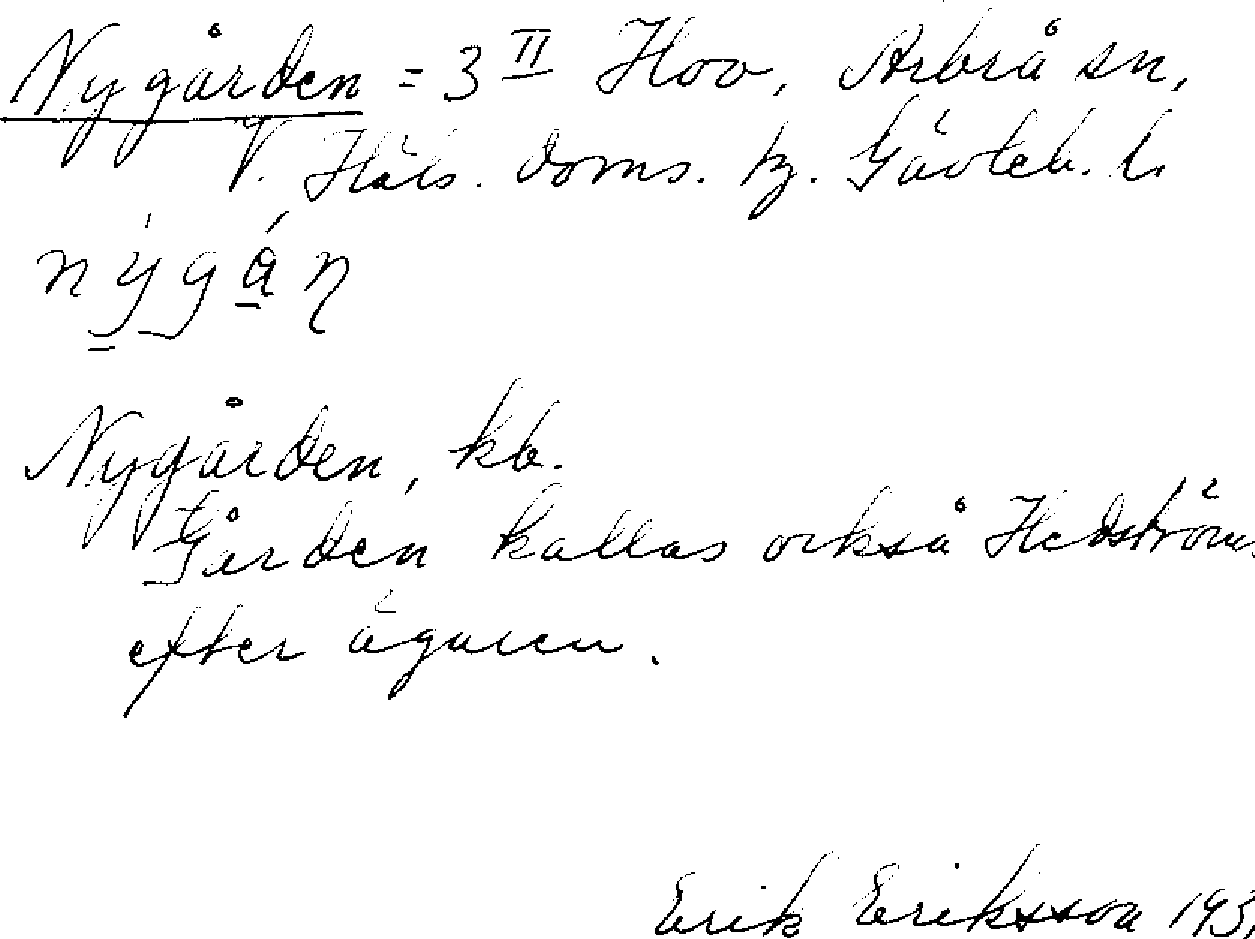 Nygården = 3 II Hov, Arbrå sn,
V. Häls. doms. tg. Gävleb. l.
nýgǻn
Nygården, kb.
Gården kallas också Hedströms
efter ägaren.
Erik Eriksson 193